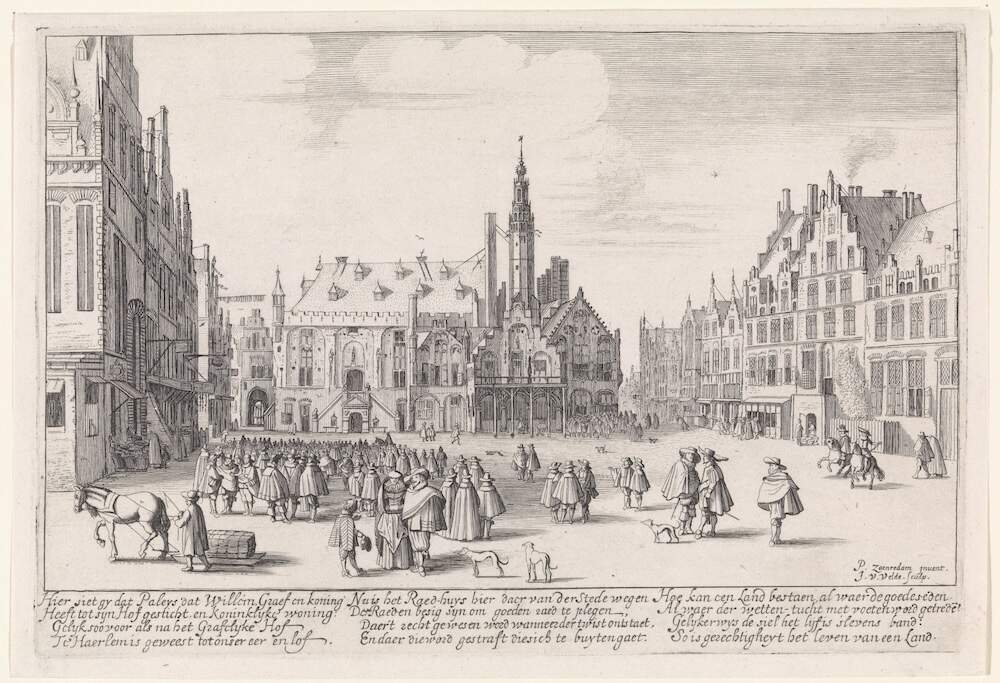 P. Zaenredam invent.
J. V. Velde. sculp.
Hier siet gy dat Paleys dat Willem Graef en koning
Heeft tot sijn Hof gesticht, en Koninklyke woning
Gelyk soo voor als na het Graeflyke Hof
Te Haerlem is geweest tot onser eer en lof
Nu is het Raed-huys hier daer van der Stede wegen
De Raed en besig sijn om goeden raed te plegen
Daer't recht gewesen werd wanneer der twist ontstaet.
En daer die word gestraft die sich te buyten gaet.
Hoe kan een Land bestaen, al waer de goede seden
Al waer der wetten-tucht met voeten word getreden
Gelykerwys de siel het lyf is slevens band:
So is gerechtigheyt het leven van een Land.